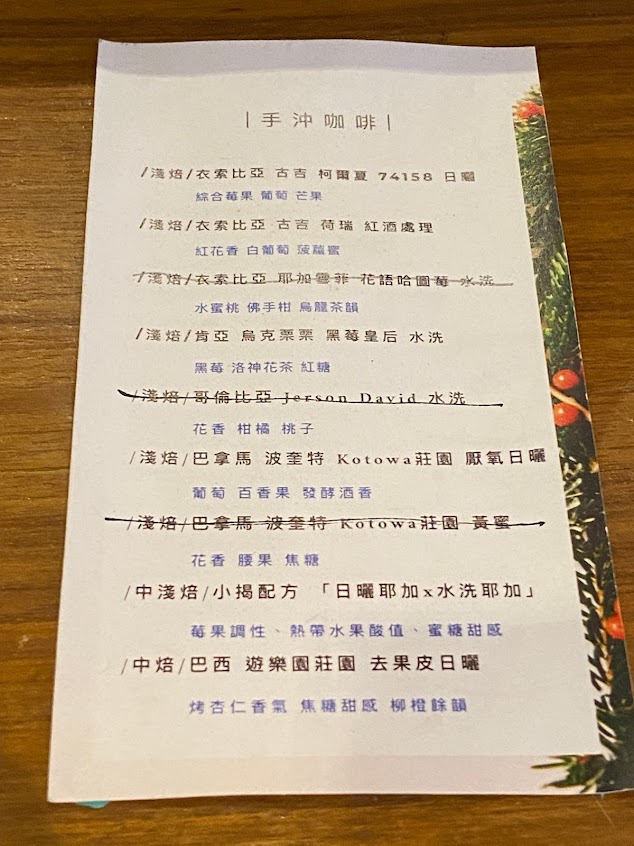 |手沖咖啡|
/淺焙/衣索比亞 古吉 柯爾夏 74158 日曬
綜合莓果 葡萄 芒果
/淺焙/衣索比亞 古吉 荷瑞 紅酒處理
紅花香 白葡萄 菠蘿蜜
/淺焙/衣索比亞 耶加雪菲 花語哈圖莓 水洗
水蜜桃 佛手柑 烏龍茶韻
/淺焙/肯亞 烏克栗栗 黑莓皇后 水洗
黑莓 洛神花茶 紅糖
/淺焙/哥倫比亞 Jerson David 水洗
花香 柑橘 桃子
/淺焙/巴拿馬 波奎特 Kotowa莊園 厭氧日曬
葡萄 百香果 發酵酒香
/淺焙/巴拿馬 波奎特 Kotowa莊園 黃蜜
花香 腰果 焦糖
/中淺焙/小揭配方 「日曬耶加x水洗耶加」
莓果調性、熱帶水果酸值、蜜糖甜感
/中焙/巴西 遊樂園莊園 去果皮日曬
烤杏仁香氣 焦糖甜感 柳橙餘韻